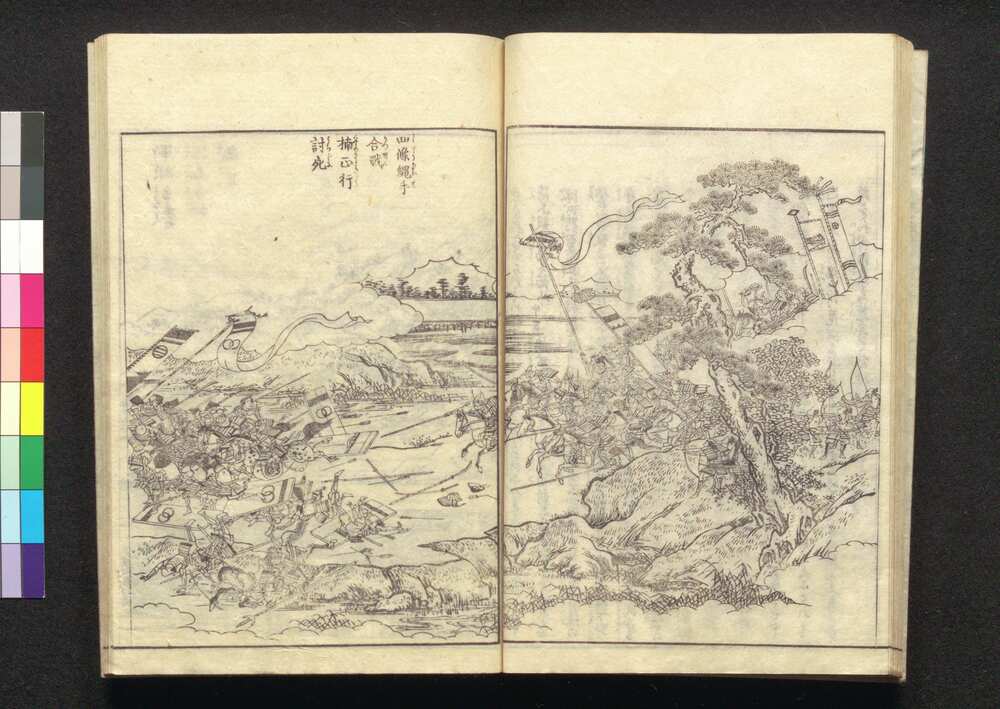 四條縄手
合戦
楠正行
討死